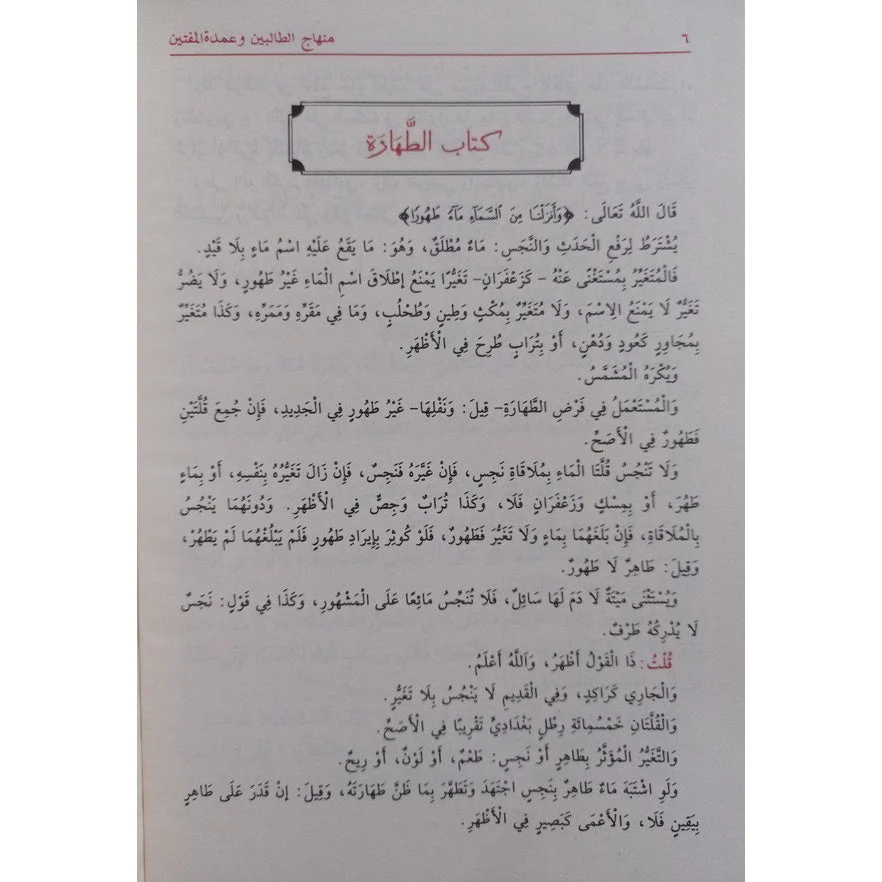 ٦ منهاج الطالبين وعمدة المفتين
كتاب الطَّهَارَة
قَالَ اللَّهُ تَعَالَى: ﴿وَأَنزَلْنَا مِنَ السَّمَآءِ مَآءً طَهُورًا﴾
يُشْتَرَطُ لِرَفْعِ الْحَدَثِ وَالنَّجَسِ: مَاءٌ مُطْلَقٌ، وَهُوَ: مَا يَقَعُ عَلَيْهِ اسْمُ مَاءٍ بِلَا قَيْدٍ.
فَالْمُتَغَيِّرُ بِمُسْتَغْنًى عَنْهُ – كَزَعْفَرَانٍ– تَغَيُّرًا يَمْنَعُ إِطْلَاقَ اسْمِ الْمَاءِ غَيْرُ طَهُورٍ، وَلَا يَضُرُّ
تَغَيُّرٌ لَا يَمْنَعُ الِاسْمَ، وَلَا مُتَغَيِّرٌ بِمُكْثٍ وَطِينٍ وَطُحْلُبٍ، وَمَا فِي مَقَرِّهِ وَمَمَرِّهِ، وَكَذَا مُتَغَيِّرٌ
بِمُجَاوِرٍ كَعُودٍ وَدُهْنٍ، أَوْ بِتُرَابٍ طُرِحَ فِي الْأَظْهَرِ.
وَيُكْرَهُ الْمُشَمَّسُ.
وَالْمُسْتَعْمَلُ فِي فَرْضِ الطَّهَارَةِ– قِيلَ: وَنَفْلِهَا– غَيْرُ طَهُورٍ فِي الْجَدِيدِ، فَإِنْ جُمِعَ قُلَّتَيْنِ
فَطَهُورٌ فِي الْأَصَحِّ.
وَلَا تَنْجُسُ قُلَّتَا الْمَاءِ بِمُلَاقَاةِ نَجِسٍ، فَإِنْ غَيَّرَهُ فَنَجِسٌ، فَإِنْ زَالَ تَغَيُّرُهُ بِنَفْسِهِ، أَوْ بِمَاءٍ
طَهُرَ، أَوْ بِمِسْكٍ وَزَعْفَرَانٍ فَلَا، وَكَذَا تُرَابٌ وَجِصٌّ فِي الْأَظْهَرِ. وَدُونَهُمَا يَنْجُسُ
بِالْمُلَاقَاةِ، فَإِنْ بَلَغَهُمَا بِمَاءٍ وَلَا تَغَيُّرَ فَطَهُورٌ، فَلَوْ كُوثِرَ بِإِيرَادِ طَهُورٍ فَلَمْ يَبْلُغْهُمَا لَمْ يَطْهُرْ،
وَقِيلَ: طَاهِرٌ لَا طَهُورٌ.
وَيُسْتَثْنَى مَيْتَةٌ لَا دَمَ لَهَا سَائِلٌ، فَلَا تُنَجِّسُ مَائِعًا عَلَى الْمَشْهُورِ، وَكَذَا فِي قَوْلٍ: نَجَسٌ
لَا يُدْرِكُهُ طَرْفٌ.
قُلْتُ: ذَا الْقَوْلُ أَظْهَرُ، وَاللَّهُ أَعْلَمُ.
وَالْجَارِي كَرَاكِدٍ، وَفِي الْقَدِيمِ لَا يَنْجُسُ بِلَا تَغَيُّرٍ.
وَالْقُلَّتَانِ خَمْسُمِائَةِ رِطْلٍ بَغْدَادِيٍّ تَقْرِيبًا فِي الْأَصَحِّ.
وَالتَّغَيُّرُ الْمُؤَثِّرُ بِطَاهِرٍ أَوْ نَجِسٍ: طَعْمٌ، أَوْ لَوْنٌ، أَوْ رِيحٌ.
وَلَوِ اشْتَبَهَ مَاءٌ طَاهِرٌ بِنَجِسٍ اجْتَهَدَ وَتَطَهَّرَ بِمَا ظَنَّ طَهَارَتَهُ، وَقِيلَ: إِنْ قَدَرَ عَلَى طَاهِرٍ
بِيَقِينٍ فَلَا، وَالْأَعْمَى كَبَصِيرٍ فِي الْأَظْهَرِ.